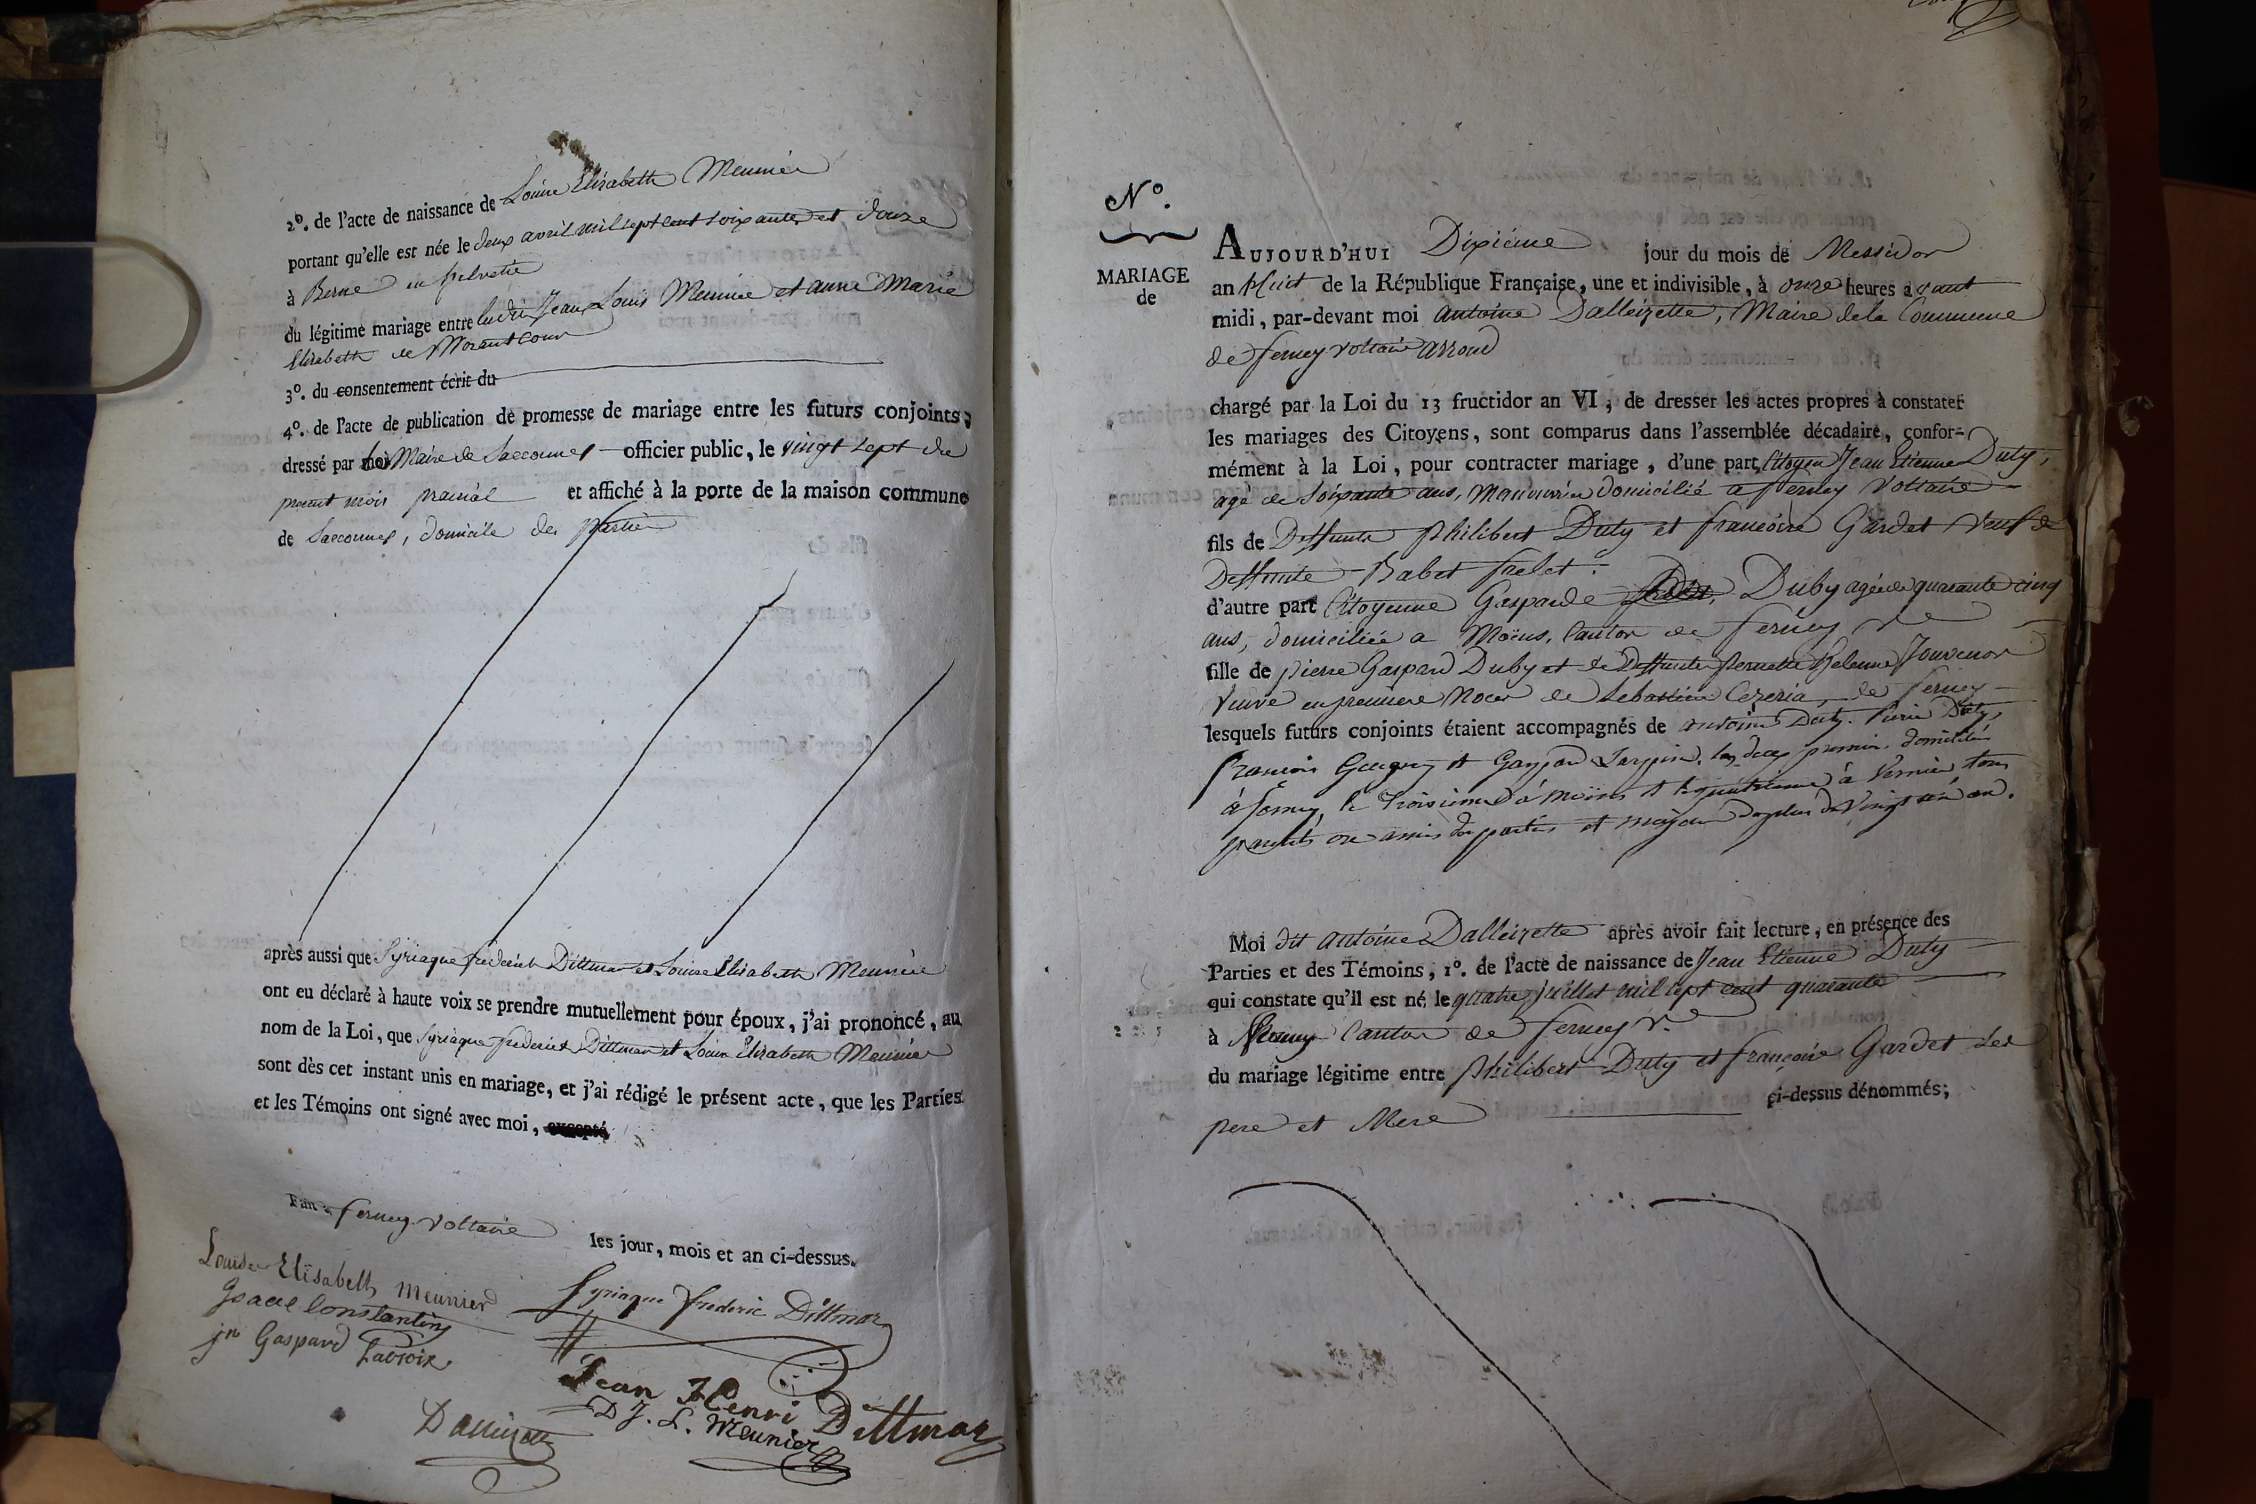 2º. de l'acte de naissance de Louise Elisabeth Meunier
portant qu'elle est née le deux avril mil sept cent soixante et douze
à Berne en helvetie
du légitime mariage entre Jean Louis Meunier et anne Marie
Elisabeth de
3º. du consentement écrit du
4º. de l'acte de publication de promesse de mariage entre les futurs conjoints,
dressé par moi Maire de Sacconnex officier public, le vingt sept du
présent mois prairial et affiché à la porte de la maison commune
de Sacconnex, domicile des parties
après aussi que Syriaque frederich Dittmar et Louise Elisabeth Meunier
ont eu déclaré à haute voix se prendre mutuellement pour époux, j'ai prononcé, au
nom de la Loi, que Syriaque frederich Dittmar et Louise Elisabeth Meunier
sont dès cet instant unis en mariage, et j'ai rédigé le présent acte, que les Parties
et les Témoins ont signé avec moi, excepté
Fait à ferney voltaire les jour, mois et an ci-dessus.
Louise Elisabeth Meunier
Syriaque frederic Dittmar
Isaac Constantin
jn Gaspard Lacroix
Jean Henri Dittmar
D J. L. Meunier
Dalleizette
Nº.
MARIAGE
de
AUJOURD'HUI Dixiéme jour du mois de Messidor
an huit de la République Française, une et indivisible, à onze heures avant
midi, par-devant moi antoine Dalleizette, Maire de la Commune
de ferney voltaire
chargé par la Loi du 13 fructidor an VI, de dresser les actes propres à constater
les mariages des Citoyens, sont comparus dans l'assemblée décadaire, confor-
mément à la Loi, pour contracter mariage, d'une part Citoyen Jean Etienne Duty,
agé de soixante ans, Manouvrier domicilié a ferney voltaire
fils de Deffunts philibert Duty et francoise Gardet veuf de
Deffunte Babet frelet.
d'autre part Citoyenne Gasparde Duby agée de quarante cinq
ans, domiciliée a Moëns, Canton de ferney
fille de pierre Gaspard Duby et de Deffunte pernette helenne Jouvenon
veuve en premiere Noces de Sebastien Cezeria, de ferney
lesquels futurs conjoints étaient accompagnés de antoine Duty. Pierre Duty,
francois et Gaspard les deux premiers domiciliés
à ferney, le troisieme à Moëns et le quatrieme à Vernier, tous
parents ou amis des parties et majeurs de plus de vingt un an.
Moi dit antoine Dalleizette après avoir fait lecture, en présence des
Parties et des Témoins, 1º. de l'acte de naissance de Jean Etienne Duty
qui constate qu'il est né le quatre juillet mil sept cent quarante
à Canton de ferney v.
du mariage légitime entre philibert Duty et françoise Gardet ses
pere et Mere ci-dessus dénommés;